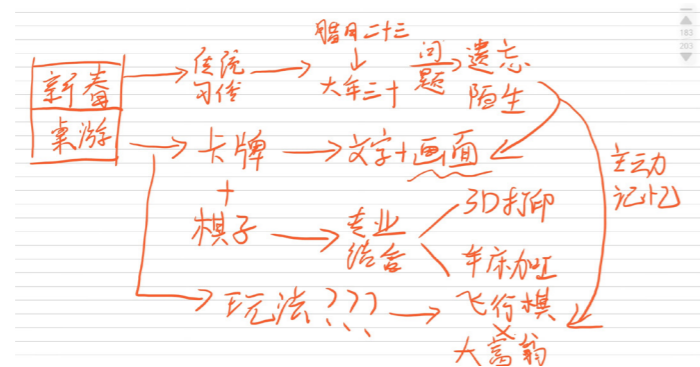 新春
桌游
传统
习俗
腊月二十三
大年三十
问题
遗忘
陌生
卡牌
+
棋子
文字+画面
主动
记忆
专业
结合
3D打印
车床加工
玩法???
飞行棋
×
大富翁
183
203